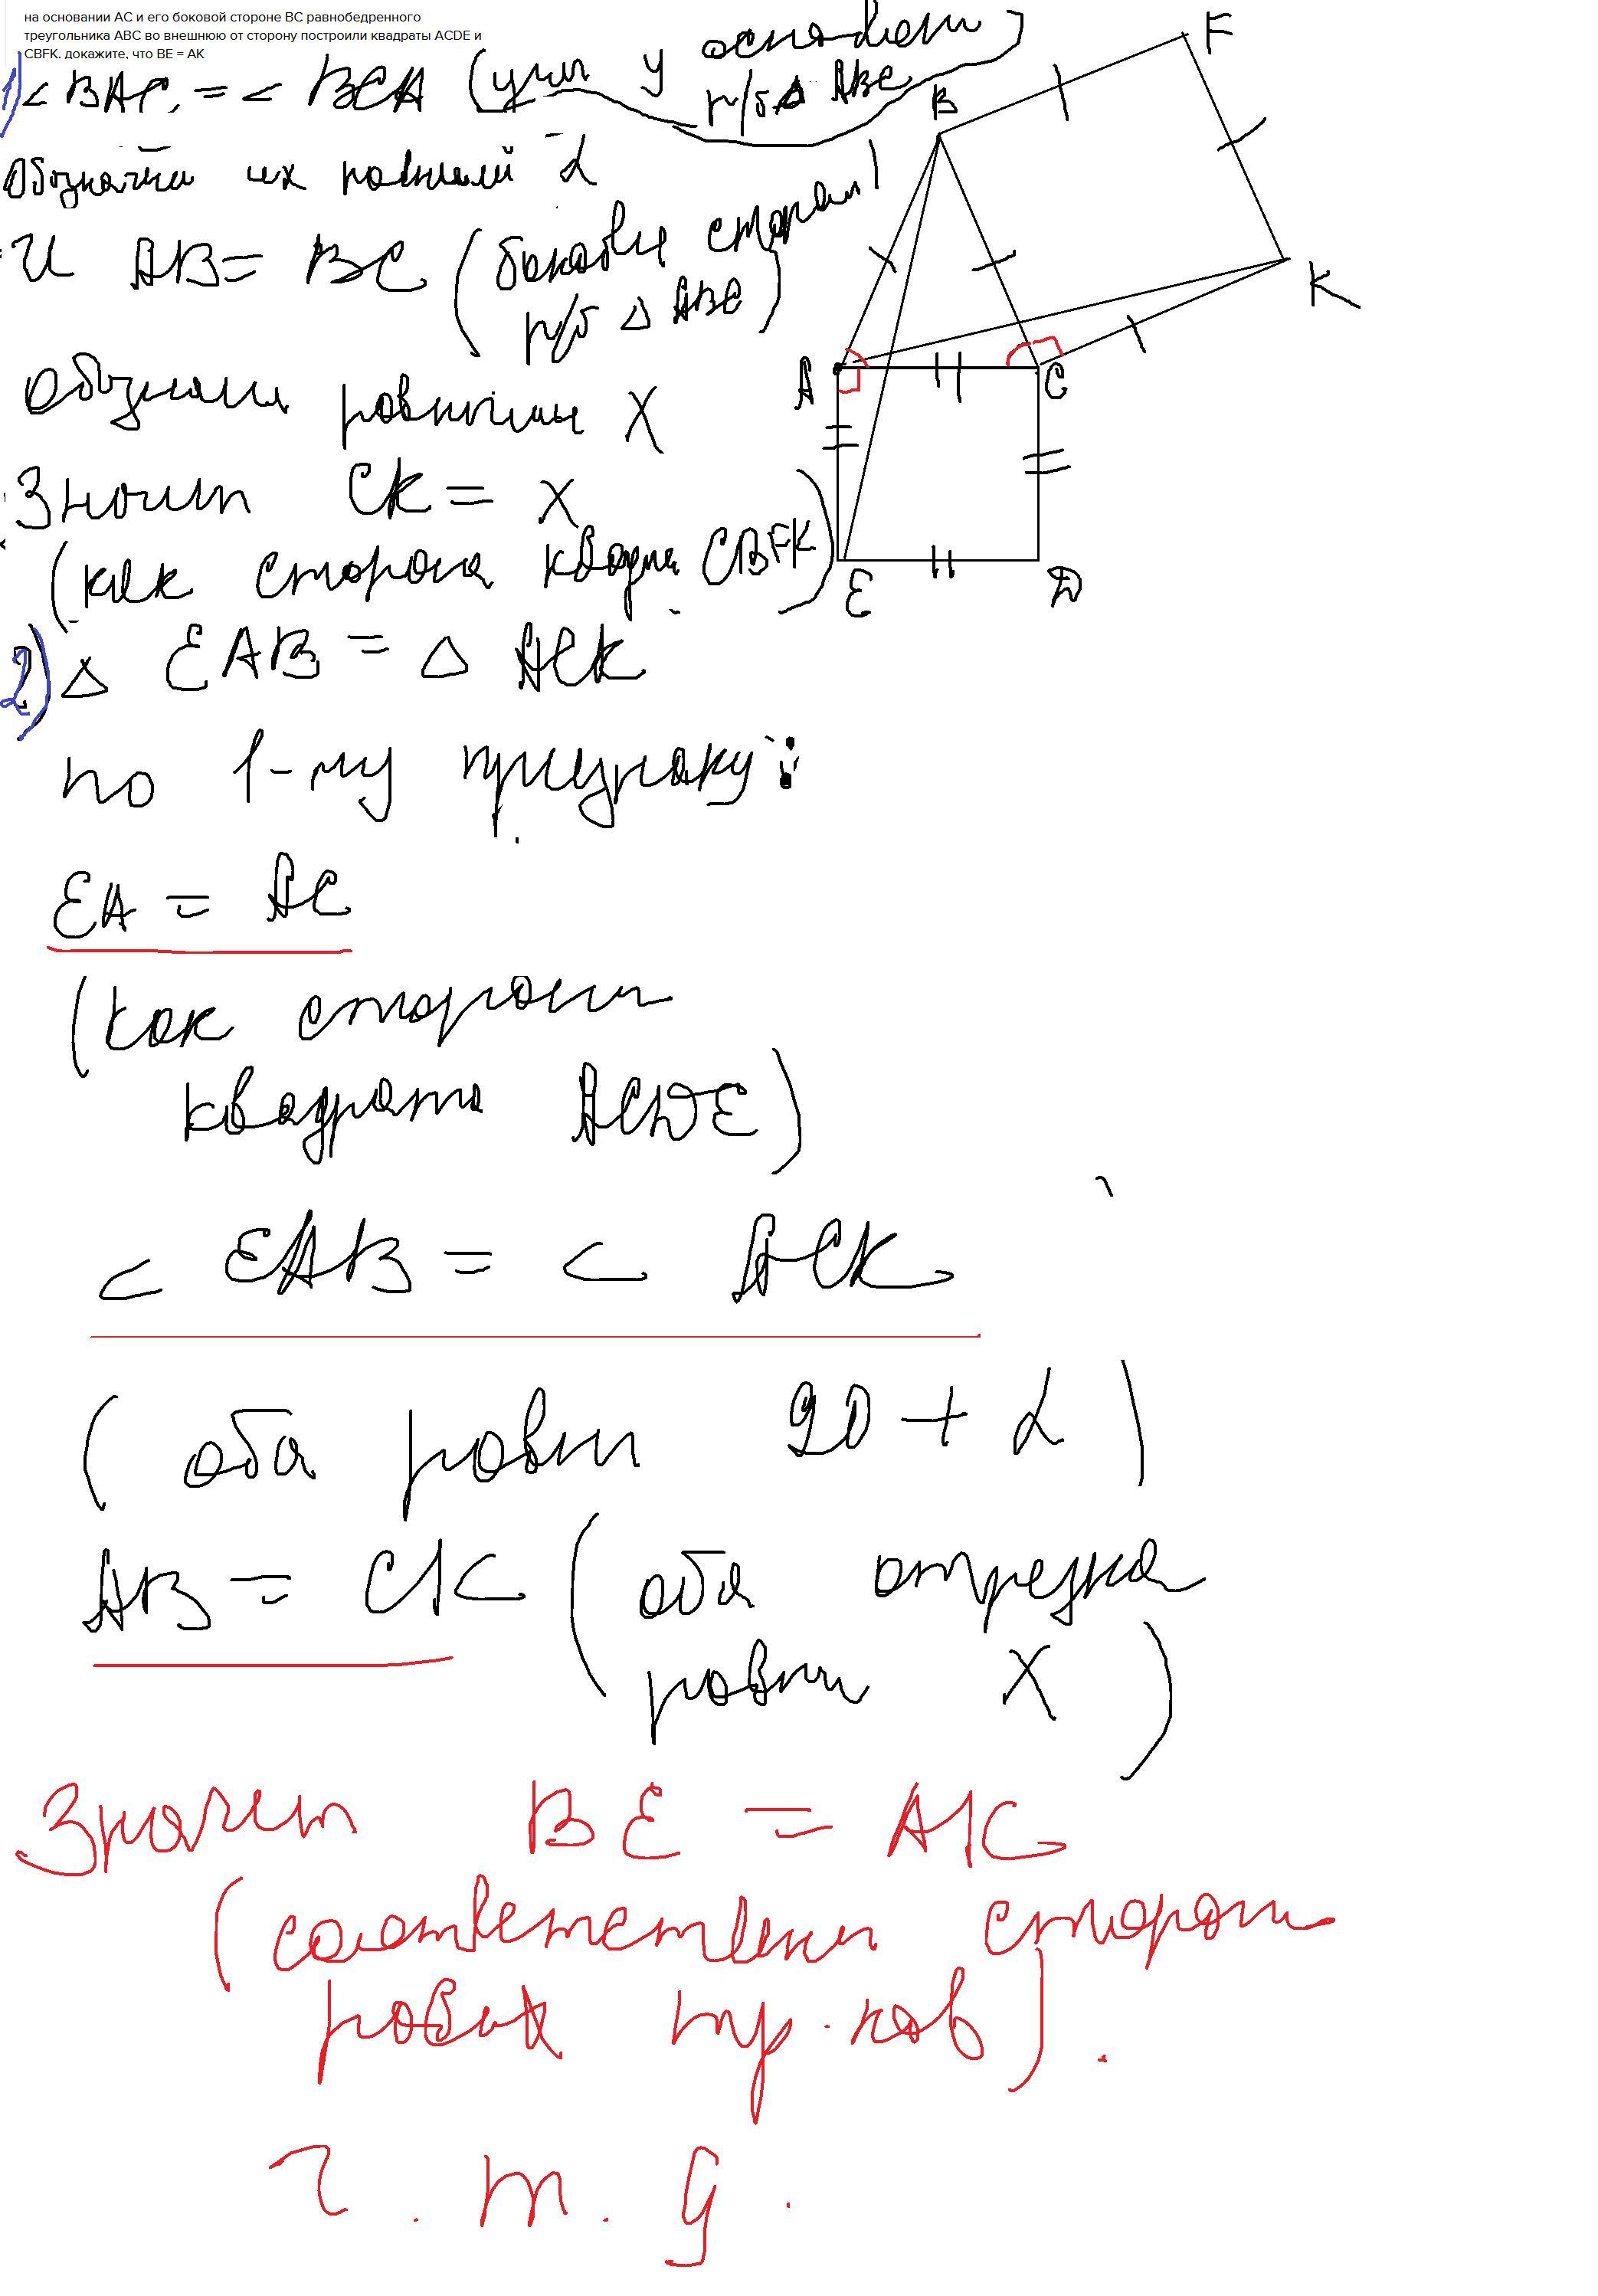 на основании AC и его боковой стороне BC равнобедренного
треугольника ABC во внешнюю от сторону построили квадраты ACDE и
CBFK. докажите, что BE = AK
1) < BAC = < BCA (углы у основан
р/б △ ABC)
Обозначим их равными α
И AB = BC (боковые сторон
р/б △ ABC)
Обозначим равными X
Значит CK = X
(как сторона квадра CBFK)
2) △ EAB = △ ACK
по 1-му признаку:
EA = AC
(как стороны
квадрата ACDE)
< EAB = < ACK
(оба равны 90 + α)
AB = CK (оба отрезка
равны X)
Значит BE = AK
(соответственны стороны
равных тр-ков).
Ч. т. д.
B
F
K
A
C
E
D